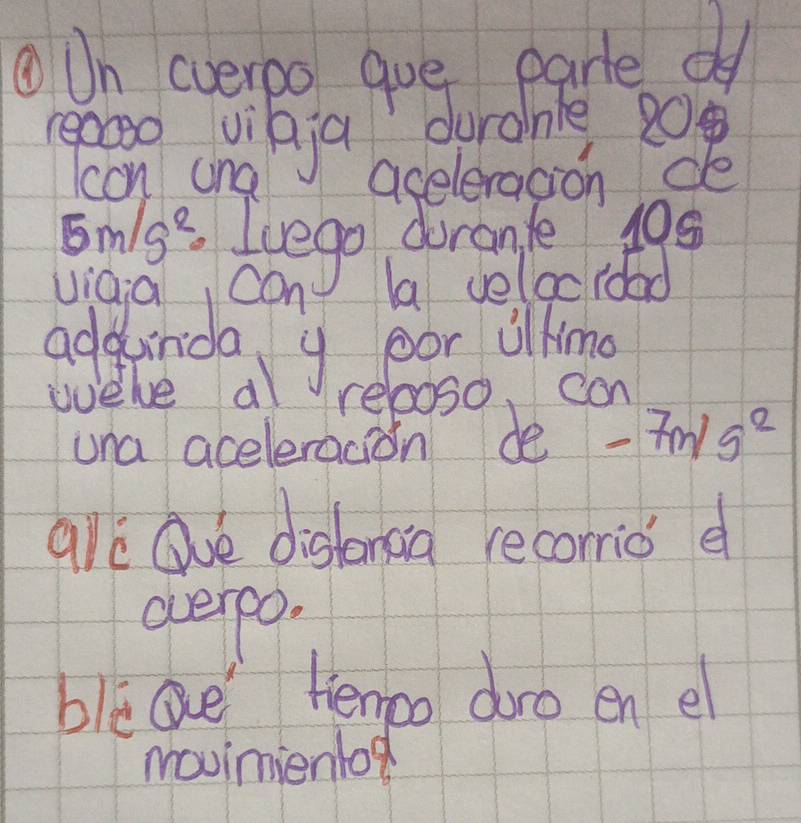 ① Un cuerpo que parte del
reposo viaja durante 20s
con una aceleración de
5m/s². Luego durante 10s
viaja, con la velocidad
adquirida, y por último
vuelve al reposo, con
una aceleración de -7m/s²
a/¿Qué distancia recorrió el
cuerpo.
b/¿Qué tiempo duro en el
movimiento?